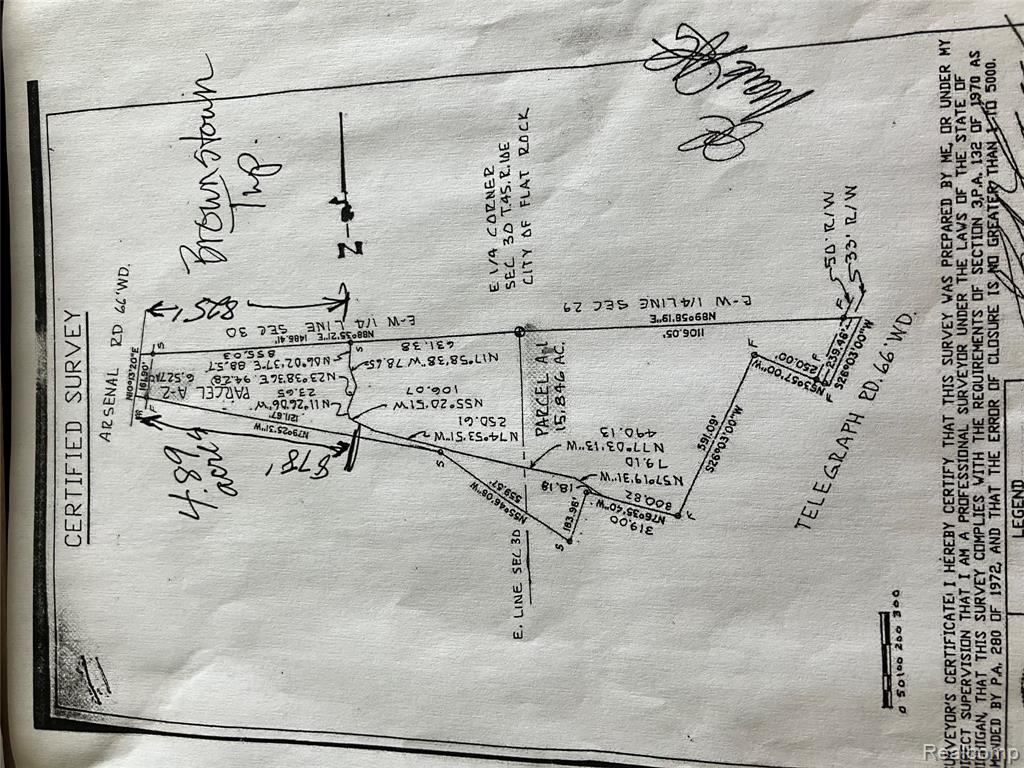 CERTIFIED SURVEY
ARSENAL RD 66'WD.
Brownstown
Twp.
N10°13'20"E
161.90'
825'
4.89
acres
878'
PARCEL
A-2
6.527AC
1211.67'
N79°25'31"W
E-W 1/4 LINE
SEC 30
N88°35'21"E 1486.41'
855.03
631.38
N23°38'36"E 94.28
23.65
N11°26'06"W
N17°58'38"W 78.65
106.07
N55°20'51"W
250.61
N74°53'51"W
N
E 1/4 CORNER
SEC 30 T.4S. R.10E
CITY OF FLAT ROCK
PARCEL A-1
15.846 AC.
490.13
N77°03'13"W
79.10
N57°19'31"W
18.18
800.82
N76°35'40"W
319.00
559.67'
N55°46'08"W
183.96'
E. LINE SEC 30
E-W 1/4 LINE SEC 29
N89°58'19"E
1106.05'
591.09'
S26°03'00"W
250.00'
N63°57'00"W
239.46'
S26°03'00"W
50' R/W
33' R/W
TELEGRAPH RD. 66' WD.
0 50 100 200 300
SURVEYOR'S CERTIFICATE: I HEREBY CERTIFY THAT THIS SURVEY WAS PREPARED BY ME, OR UNDER MY
DIRECT SUPERVISION THAT I AM A PROFESSIONAL SURVEYOR UNDER THE LAWS OF THE STATE OF
MICHIGAN, THAT THIS SURVEY COMPLIES WITH THE REQUIREMENTS OF SECTION 3, P.A. 132 OF 1970 AS
AMENDED BY P.A. 280 OF 1972, AND THAT THE ERROR OF CLOSURE IS NO GREATER THAN 1 TO 5000.
LEGEND
Realcomp